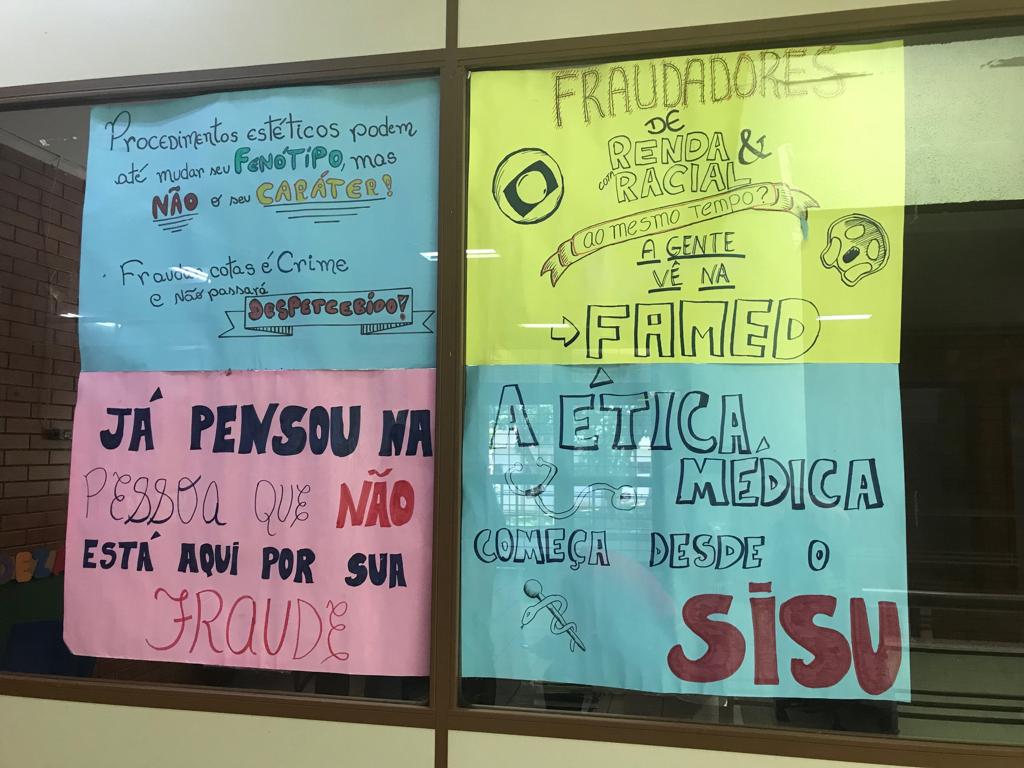 Procedimentos estéticos podem
até mudar seu FENÓTIPO, mas
NÃO o seu CARÁTER!
· Fraudar cotas é Crime
e não passará
DESPERCEBIDO!
JÁ PENSOU NA
PESSOA QUE NÃO
ESTÁ AQUI POR SUA
FRAUDE
FRAUDADORES
DE
RENDA &
com RACIAL
AO MESMO TEMPO?
A GENTE
VÊ NA
FAMED
A ÉTICA
MÉDICA
COMEÇA DESDE O
SISU